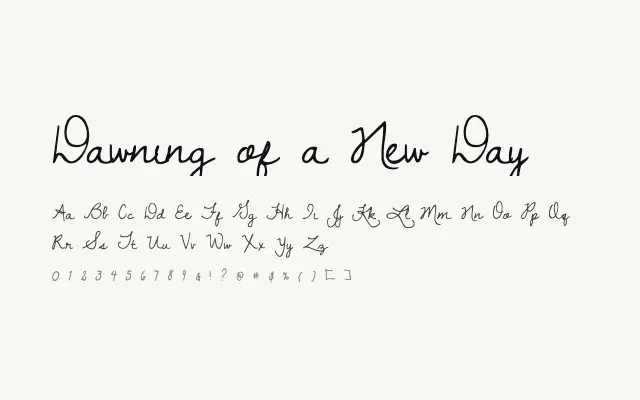 Dawning of a New Day
Aa Bb Cc Dd Ee Ff Gg Hh Ii Jj Kk Ll Mm Nn Oo Pp Qq
Rr Ss Tt Uu Vv Ww Xx Yy Zz
0 1 2 3 4 5 6 7 8 9 & ! ? @ # $ % ( ) [ ]